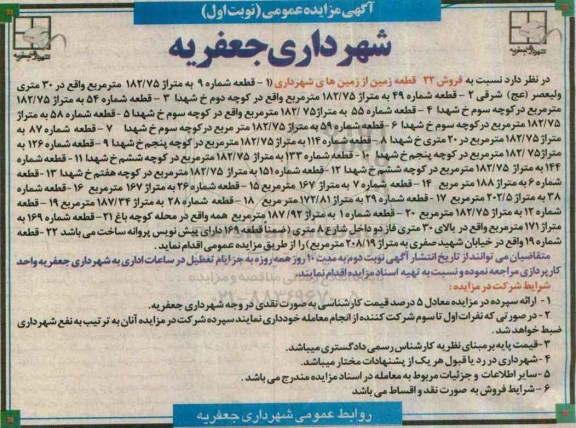 آگهی مزایده عمومی (نوبت اول)
شهرداری جعفریه
در نظر دارد نسبت به فروش ۲۲ قطعه زمین از زمین های شهرداری (۱ - قطعه شماره ۹ به متراژ ۱۸۲/۷۵ مترمربع واقع در ۳۰ متری
ولیعصر (عج) شرقی ۲ - قطعه شماره ۴۹ به متراژ ۱۸۲/۷۵ مترمربع واقع در کوچه دوم خ شهدا ۳ - قطعه شماره ۵۴ به متراژ ۱۸۲/۷۵
مترمربع در کوچه سوم خ شهدا ۴ - قطعه شماره ۵۵ به متراژ ۱۸۲/۷۵ مترمربع واقع در کوچه سوم خ شهدا ۵ - قطعه شماره ۵۸ به متراژ
۱۸۲/۷۵ مترمربع واقع در کوچه سوم خ شهدا ۶ - قطعه شماره ۵۹ به متراژ ۱۸۲/۷۵ مترمربع در کوچه سوم خ شهدا ۷ - قطعه شماره ۸۷ به
متراژ ۱۸۲/۷۵ مترمربع در ۲۰ متری خ شهدا ۸ - قطعه شماره ۱۱۴ به متراژ ۱۸۲/۷۵ مترمربع در کوچه پنجم خ شهدا ۹ - قطعه شماره ۱۲۶ به
متراژ ۱۸۲/۷۵ مترمربع در کوچه پنجم خ شهدا ۱۰ - قطعه شماره ۱۳۳ به متراژ ۱۸۲/۷۵ مترمربع در کوچه ششم خ شهدا ۱۱ - قطعه شماره
۱۴۴ به متراژ ۱۸۲/۷۵ مترمربع در کوچه ششم خ شهدا ۱۲ - قطعه شماره ۱۵۱ به متراژ ۱۸۲/۷۵ مترمربع در کوچه هفتم خ شهدا ۱۳ - قطعه
شماره ۶ به متراژ ۱۸۸ مترمربع ۱۴ - قطعه شماره ۷ به متراژ ۱۶۷ مترمربع ۱۵ - قطعه شماره ۲۶ به متراژ ۱۶۷ مترمربع ۱۶ - قطعه شماره
۳۸ به متراژ ۲۰۲/۵ مترمربع ۱۷ - قطعه شماره ۲۹ به متراژ ۱۷۲/۸۱ مترمربع ۱۸ - قطعه شماره ۲۸ به متراژ ۱۸۷/۳۴ مترمربع ۱۹ - قطعه
شماره ۱۲ به متراژ ۱۸۲/۷۵ مترمربع ۲۰ - قطعه شماره ۱ به متراژ ۱۸۷/۹۲ مترمربع همه واقع در محله کوچه باغ ۲۱ - قطعه شماره ۱۶۹ به
متراژ ۱۷۱ مترمربع واقع در بالای ۳۰ متری فاز دو داخل شارع ۸ متری (ضمنا قطعه ۱۶۹ دارای پیش نویس پروانه ساخت می باشد ۲۲ - قطعه
شماره ۱۹ واقع در خیابان شهید صفری به متراژ ۲۰۸/۱۹ مترمربع) را از طریق مزایده عمومی اقدام نماید.
متقاضیان می توانند از تاریخ انتشار آگهی نوبت دوم به مدت ۱۰ روز همه روزه به جز ایام تعطیل در ساعات اداری به شهرداری جعفریه واحد
کارپردازی مراجعه نموده و نسبت به تهیه اسناد مزایده اقدام نمایند.
شرایط شرکت در مزایده :
۱ - ارائه سپرده در مزایده معادل ۵ درصد قیمت کارشناسی به صورت نقدی در وجه شهرداری جعفریه.
۲ - در صورتی که نفرات اول تا سوم شرکت کننده از انجام معامله خودداری نمایند سپرده شرکت در مزایده آنان به ترتیب به نفع شهرداری
ضبط خواهد شد.
۳ - قیمت پایه بر مبنای نظریه کارشناس رسمی دادگستری میباشد.
۴ - شهرداری در رد یا قبول هر یک از پیشنهادات مختار میباشد.
۵ - سایر اطلاعات و جزئیات مربوط به معامله در اسناد مزایده مندرج می باشد .
۶ - شرایط فروش به صورت نقد و اقساط می باشد
روابط عمومی شهرداری جعفریه